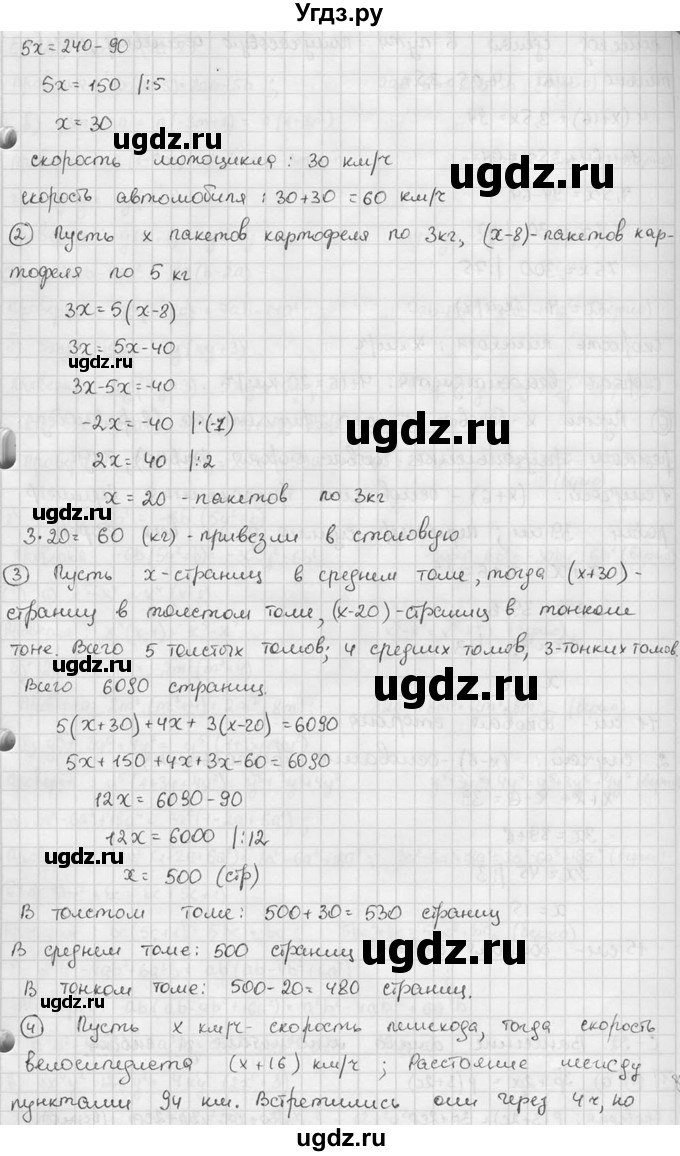 Угдз.ру
5x = 240 - 90
5x = 150 |:5
x = 30
ugdz.ru
ugdz.ru
скорость мотоцикла: 30 км/ч
скорость автомобиля: 30+30 = 60 км/ч
② Пусть x пакетов картофеля по 3кг, (x-8)-пакетов кар-
тофеля по 5 кг
3x = 5(x-8)
3x = 5x-40
ugdz.ru
3x-5x = -40
-2x = -40 |·(-1)
ugdz.ru
2x = 40 |:2
x = 20 - пакетов по 3кг
ugdz.ru
3·20 = 60 (кг) - привезли в столовую
③ Пусть x-страниц в среднем томе, тогда (x+30)-
страниц в толстом томе, (x-20)-страниц в тонком
томе. Всего 5 толстых томов; 4 средних томов, 3-тонких томов.
ugdz.ru
ugdz.ru
Всего 6090 страниц.
5(x+30)+4x+3(x-20) = 6090
5x+150+4x+3x-60 = 6090
12x = 6090-90
12x = 6000 |:12
ugdz.ru
x = 500 (стр)
В толстом томе: 500+30 = 530 страниц
В среднем томе: 500 страниц
ugdz.ru
В тонком томе: 500-20 = 480 страниц.
④ Пусть x км/ч - скорость пешехода, тогда скорость
велосипедиста (x+16) км/ч; Расстояние между
пунктами 94 км. Встретились они через 4ч, но
ugdz.ru